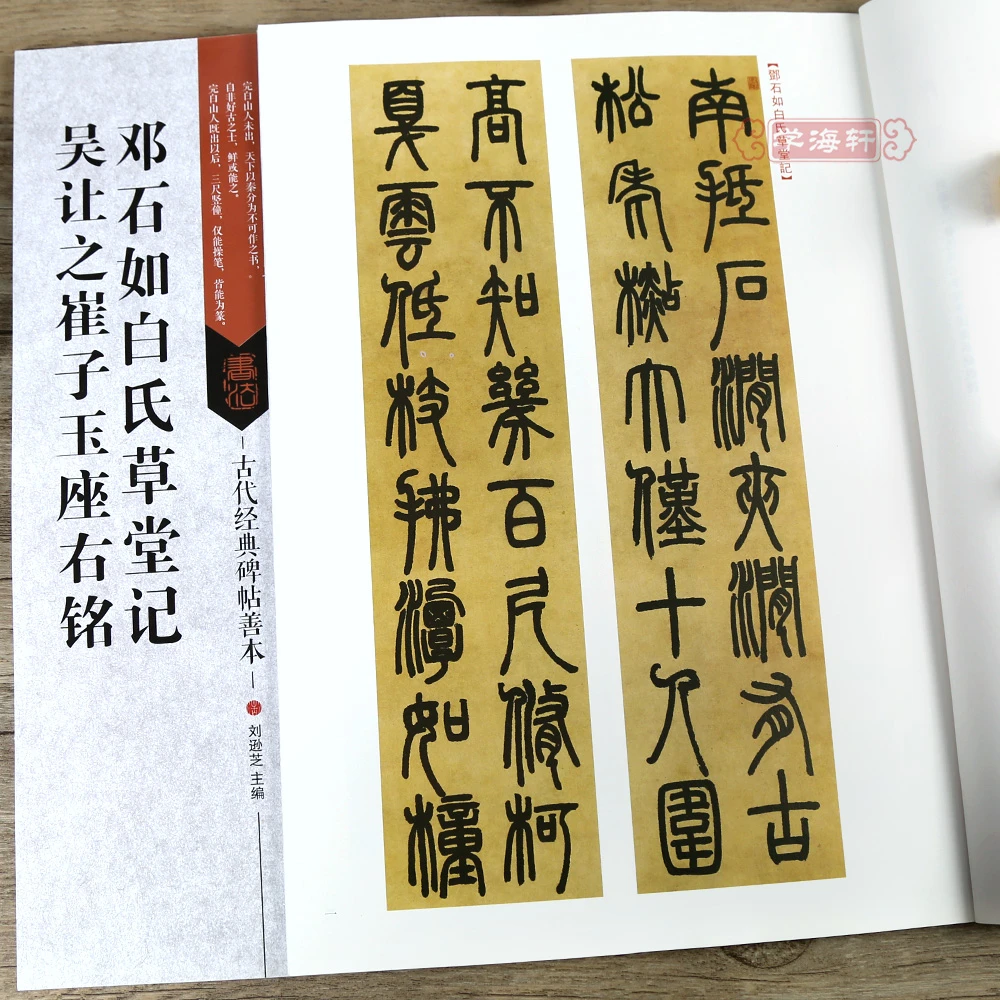 邓石如白氏草堂记
吴让之崔子玉座右铭
完白山人未出，天下以秦分为不可作之书，
自非好古之士，鲜或能之。
完白山人既出以后，三尺竖僮，仅能操笔，皆能为篆。
書法
—古代经典碑帖善本—
刘逊芝 主编
【鄧石如白氏草堂記】
学海轩
南抵石澗夾澗有古
松老檆大僅十人圍
高不知幾百尺脩柯
戛雲低枝拂潭如橦
一